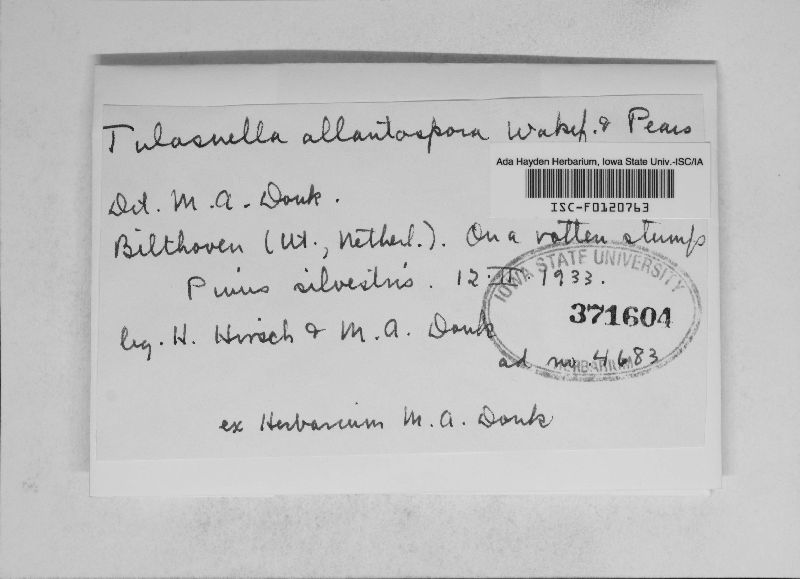 Tulasnella allantospora Wakef. & Pears
Ada Hayden Herbarium, Iowa State Univ.-ISC/IA
ISC-F0120763
Det. M. A. Donk.
Bilthoven (Ut., Netherl.). On a rotten stump
Pinus silvestris. 12 1933.
IOWA STATE UNIVERSITY
371604
HERBARIUM
leg. H. Hirsch & M. A. Donk
ad no. 4683
ex Herbarium M. A. Donk